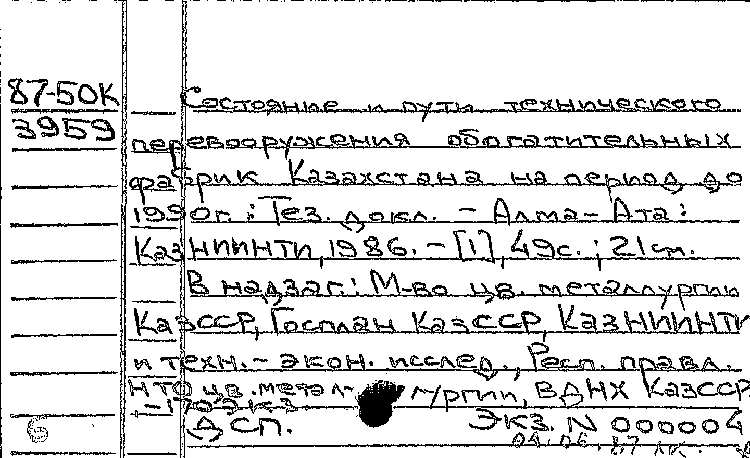 87-50К
3959
Состояние и пути технического
перевооружения обогатительных
фабрик Казахстана на период до
1990г.: Тез. докл. - Алма-Ата:
КазНИИНТИ, 1986. - [1], 49с.; 21см.
В надзаг.: М-во цв. металлургии
КазССР, Госплан КазССР, КазНИИНТИ
и техн.-экон. исслед., Респ. правл.
НТО цв. металлургии, ВДНХ КазССР
-170 экз.
ДСП. Экз. N 000004
6 04.06.87